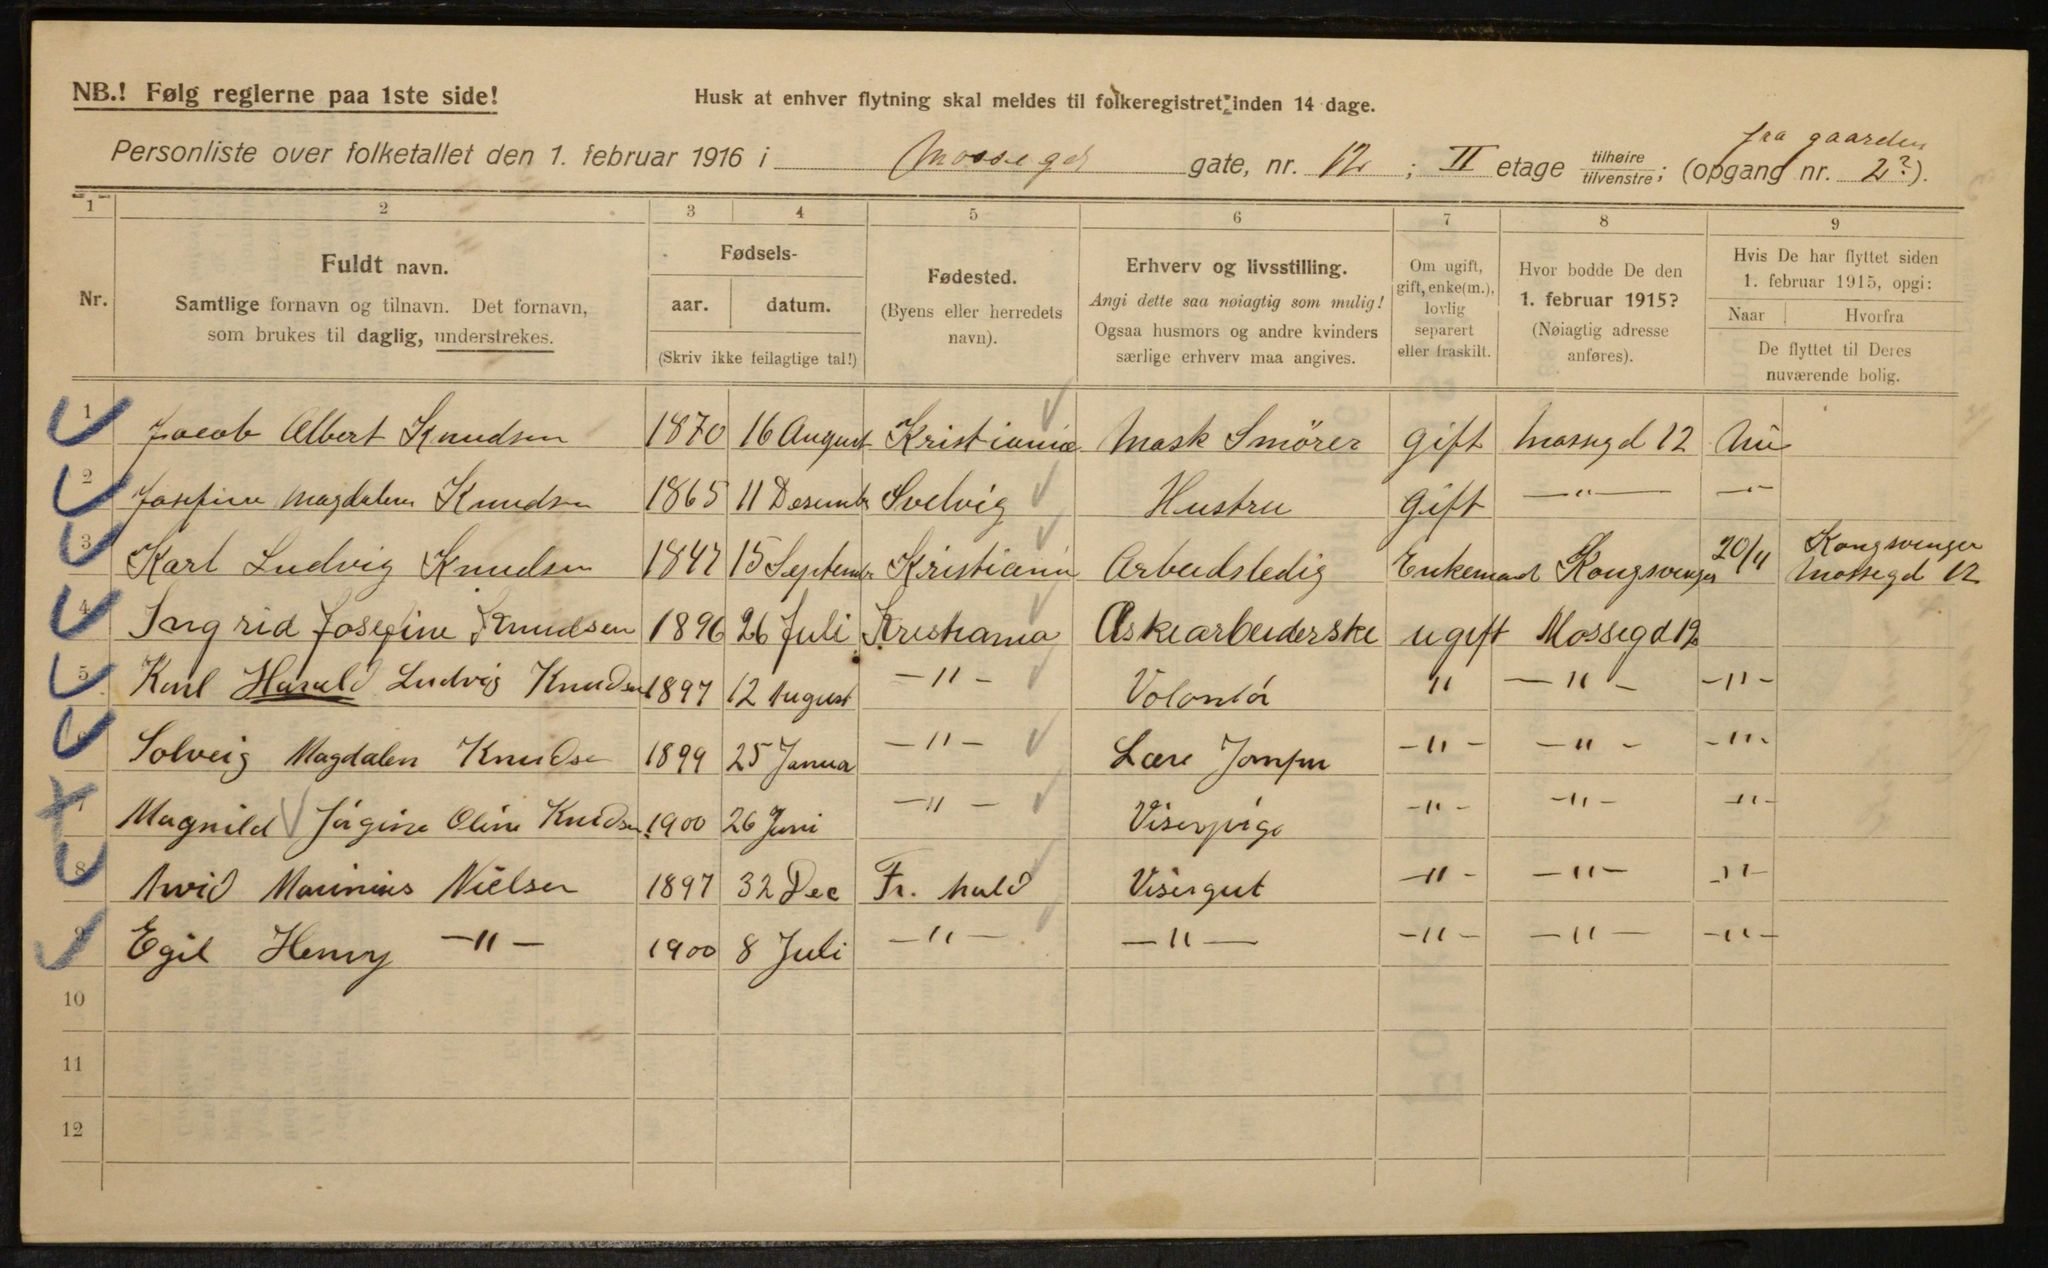 NB.! Følg reglerne paa 1ste side!
Husk at enhver flytning skal meldes til folkeregistret inden 14 dage.
fra gaarden
Personliste over folketallet den 1. februar 1916 i Mossegd gate, nr. 12 ; II etage tilhøire/tilvenstre; (opgang nr. 2?).
1 2 3 4 5 6 7 8 9
Nr. Fuldt navn. Samtlige fornavn og tilnavn. Det fornavn, som brukes til daglig, understrekes.
Fødsels- aar. datum. (Skriv ikke feilagtige tal!)
Fødested. (Byens eller herredets navn).
Erhverv og livsstilling. Angi dette saa nøiagtig som mulig! Ogsaa husmors og andre kvinders særlige erhverv maa angives.
Om ugift, gift, enke(m.), lovlig separert eller fraskilt.
Hvor bodde De den 1. februar 1915? (Nøiagtig adresse anføres).
Hvis De har flyttet siden 1. februar 1915, opgi: Naar Hvorfra De flyttet til Deres nuværende bolig.
1 Jacob Albert Knudsen 1870 16 August Kristiania Mask Smörer Gift Mossegd 12
2 Josefine Magdalene Knudsen 1865 11 Desembr Svelvig Hustru Gift —"— —"—
3 Karl Ludvig Knudsen 1847 15 Septembr Kristiania Arbeidsledig Enkemand Kongsvinger 20/11 Kongsvinger Mossegd 12
4 Ingrid Josefine Knudsen 1896 26 Juli Kristiania Æskearbeiderske ugift Mossegd 12
5 Karl Harald Ludvig Knudsen 1897 12 August —"— Volontör " —"— —"—
6 Solveig Magdalen Knudse 1899 25 Janua —"— Lære Jomfru —"— —"— —"—
7 Magnild Jörgine Oline Knudsen 1900 26 Juni —"— Viserpige —"— —"— —"—
8 Arvid Marinius Nielsen 1897 32 Dec Fr. hald Visergut —"— —"— —"—
9 Egil Henry —"— 1900 8 Juli —"— —"— —"— —"— —"—
10
11
12